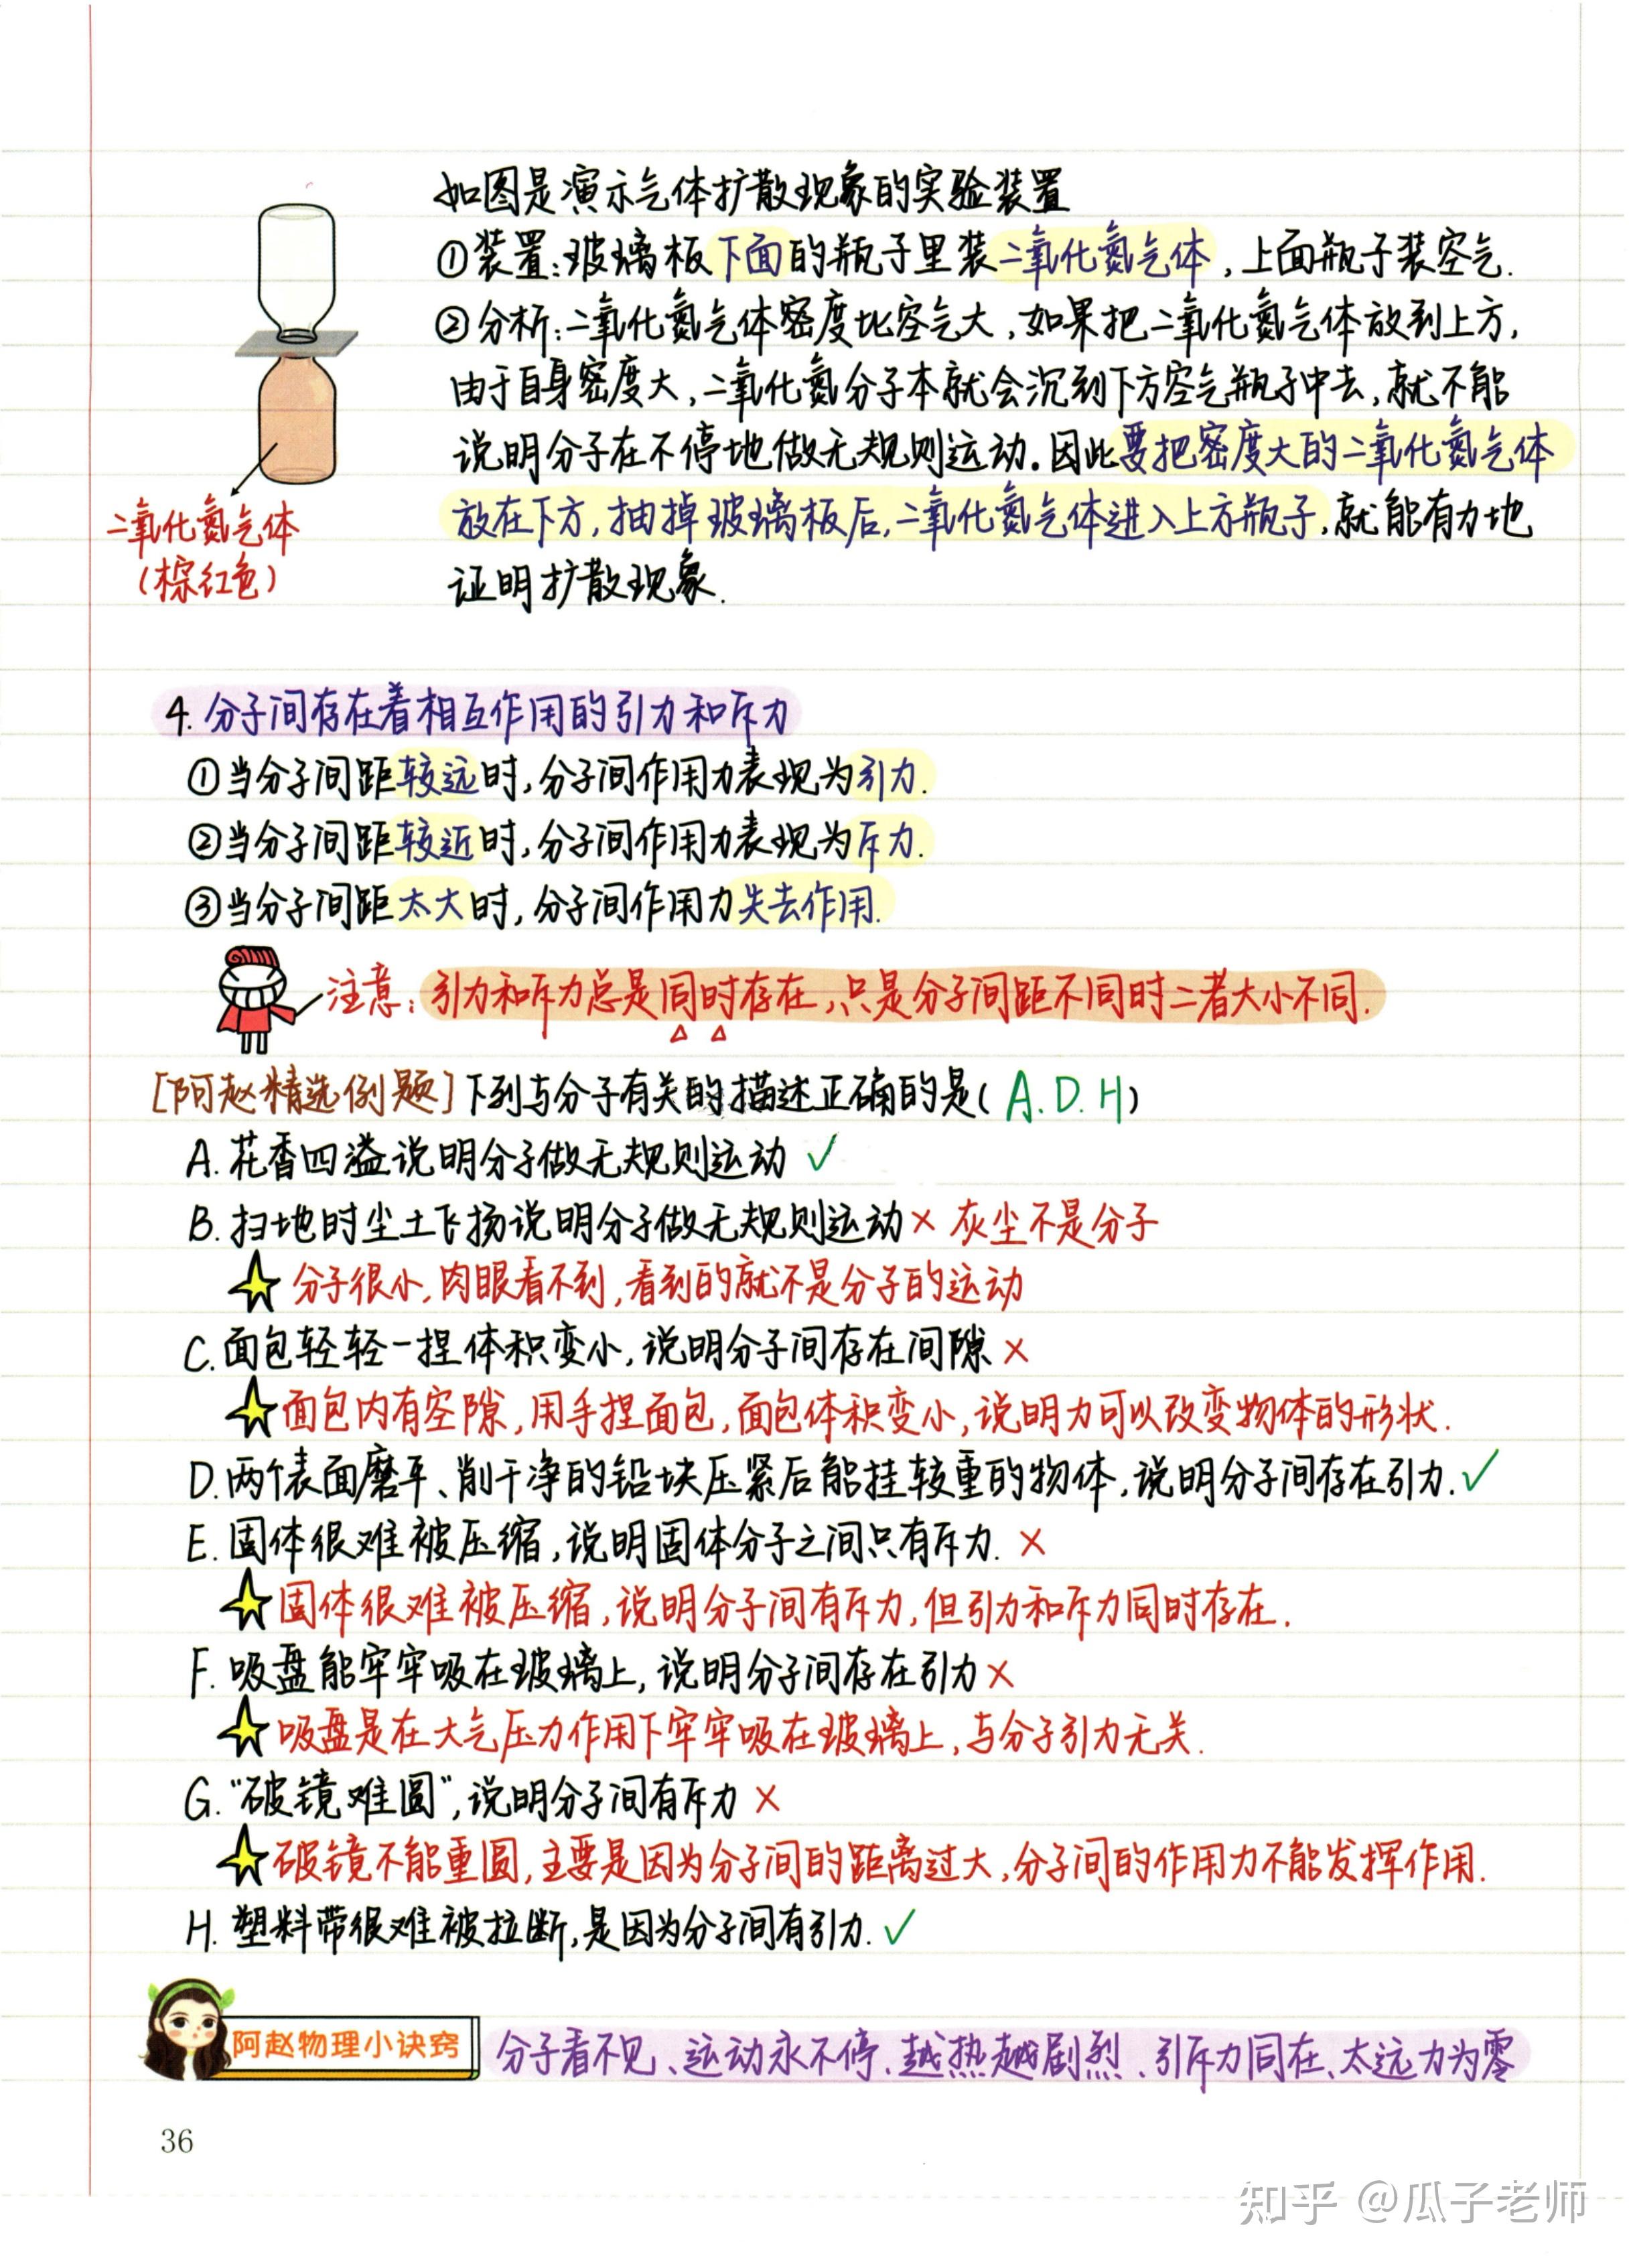 如图是演示气体扩散现象的实验装置
①装置:玻璃板下面的瓶子里装二氧化氮气体,上面瓶子装空气.
②分析:二氧化氮气体密度比空气大,如果把二氧化氮气体放到上方,
由于自身密度大,二氧化氮分子本就会沉到下方空气瓶子中去,就不能
说明分子在不停地做无规则运动.因此要把密度大的二氧化氮气体
放在下方,抽掉玻璃板后,二氧化氮气体进入上方瓶子,就能有力地
证明扩散现象.
二氧化氮气体
(棕红色)
4.分子间存在着相互作用的引力和斥力
①当分子间距较远时,分子间作用力表现为引力.
②当分子间距较近时,分子间作用力表现为斥力.
③当分子间距太大时,分子间作用力失去作用.
注意:引力和斥力总是同时存在,只是分子间距不同时二者大小不同.
[阿赵精选例题]下列与分子有关的描述正确的是(A.D.H)
A.花香四溢说明分子做无规则运动 ✓
B.扫地时尘土飞扬说明分子做无规则运动× 灰尘不是分子
分子很小,肉眼看不到,看到的就不是分子的运动
C.面包轻轻一捏体积变小,说明分子间存在间隙×
面包内有空隙,用手捏面包,面包体积变小,说明力可以改变物体的形状.
D.两个表面磨平、削干净的铅块压紧后能挂较重的物体,说明分子间存在引力.✓
E.固体很难被压缩,说明固体分子之间只有斥力.×
固体很难被压缩,说明分子间有斥力,但引力和斥力同时存在.
F.吸盘能牢牢吸在玻璃上,说明分子间存在引力×
吸盘是在大气压力作用下牢牢吸在玻璃上,与分子引力无关.
G.“破镜难圆”,说明分子间有斥力×
破镜不能重圆,主要是因为分子间的距离过大,分子间的作用力不能发挥作用.
H.塑料带很难被拉断,是因为分子间有引力.✓
阿赵物理小诀窍
分子看不见、运动永不停、越热越剧烈、引斥力同在、太远力为零
36
知乎 @瓜子老师